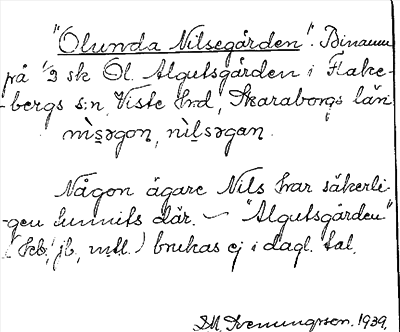 "Olunda Nilsegården". Binamn
på 1/2 sk Öl. Algutsgården i Flake-
bergs s:n, Viste hrd, Skaraborgs län
nìs̱əgon, nìḻsəgan.
Någon ägare Nils har säkerli-
gen funnits där. — "Algutsgården"
(kb, jb, mtl.) brukas ej i dagl. tal.
Svenungsson. 1939.